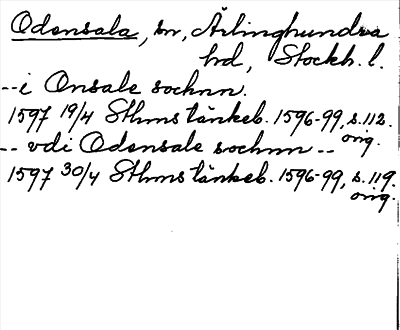 Odensala, sn, Ärlinghundra
hd, Stockh. l.
--i Onsale sochnn.
1597 19/4 Sthms tänkeb. 1596-99, s. 112.
orig.
-- vdi Odensale sochnn --
1597 30/4 Sthms tänkeb. 1596-99, s. 119.
orig.